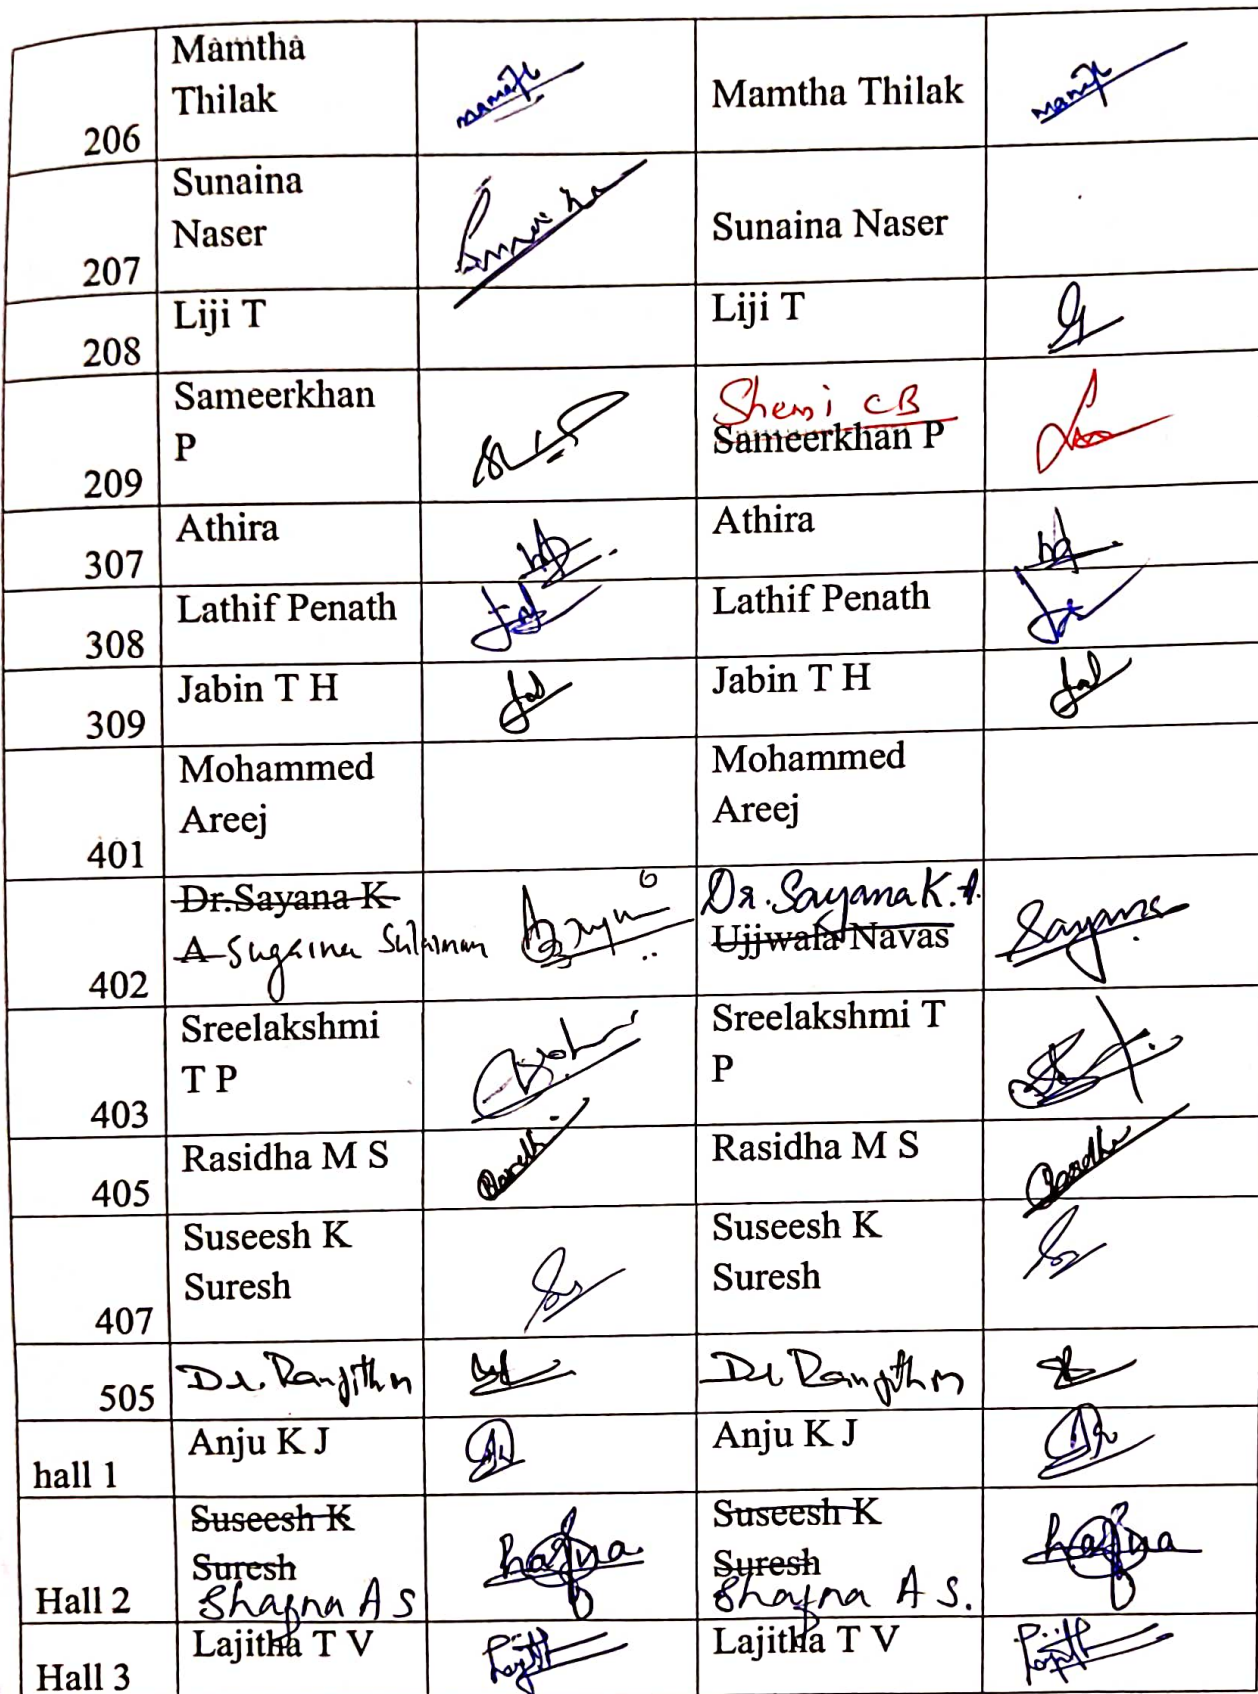 Mamtha
Thilak
Mamtha Thilak
206
Sunaina
Naser
Sunaina Naser
207
Liji T
Liji T
208
Sameerkhan
P
Shemi CB
Sameerkhan P
209
Athira
Athira
307
Lathif Penath
Lathif Penath
308
Jabin T H
Jabin T H
309
Mohammed
Areej
Mohammed
Areej
401
Dr.Sayana K
A Sugaina Sulaiman
Dr. Sayana K.A.
Ujjwala Navas
Sayana
402
Sreelakshmi
T P
Sreelakshmi T
P
403
Rasidha M S
Rasidha M S
405
Suseesh K
Suresh
Suseesh K
Suresh
407
Dr. Ranjith M
Dr Ranjith M
505
Anju K J
Anju K J
hall 1
Suseesh K
Suresh
Shafna A S
Suseesh K
Suresh
Shafna A S.
Hall 2
Lajitha T V
Lajitha T V
Hall 3